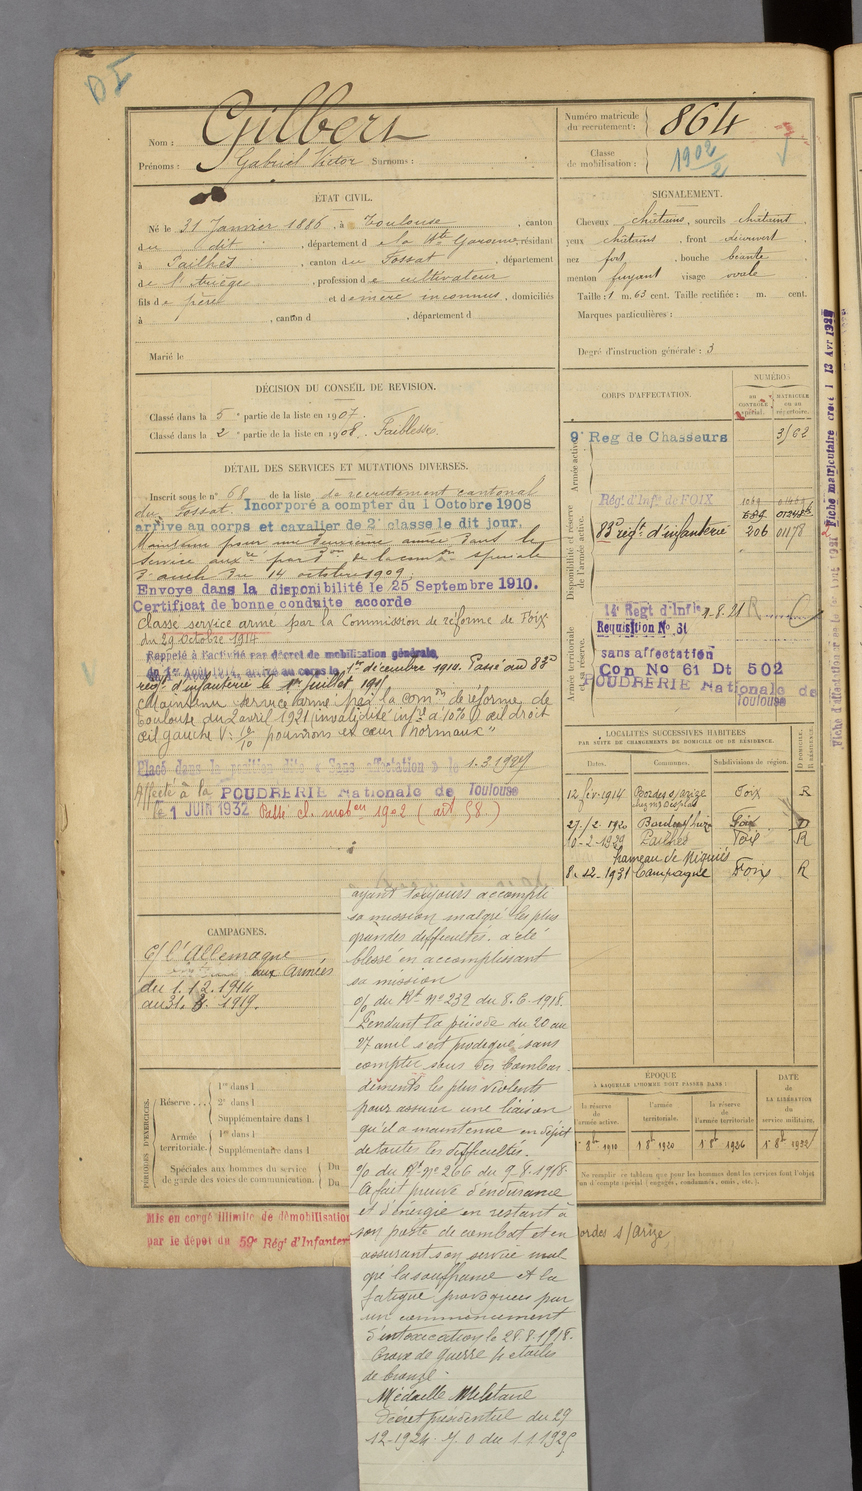 DI
Nom : Gilbert
Prénoms : Gabriel Victor Surnoms :
Numéro matricule du recrutement : 864
Classe de mobilisation : 1902/2
ÉTAT CIVIL.
Né le 31 Janvier 1886, à Toulouse, canton
du dit, département de la Hte Garonne, résidant
à Pailhès, canton du Fossat, département
de l'Ariège, profession de cultivateur
fils de père et de mère inconnus, domiciliés
à , canton d , département d
Marié le
SIGNALEMENT.
Cheveux châtains, sourcils châtains,
yeux châtains, front découvert,
nez fort, bouche béante,
menton fuyant visage ovale
Taille : 1 m. 63 cent. Taille rectifiée : m. cent.
Marques particulières :
Degré d'instruction générale : 3
DÉCISION DU CONSEIL DE REVISION.
Classé dans la 5e partie de la liste en 1907.
Classé dans la 2e partie de la liste en 1908. Faiblesse.
DÉTAIL DES SERVICES ET MUTATIONS DIVERSES.
Inscrit sous le n° 68 de la liste de recrutement cantonal
du Fossat. Incorporé a compter du 1 Octobre 1908
arrive au corps et cavalier de 2e classe le dit jour.
Maintenu pour une deuxième année dans le
service auxre par don de la comon spéciale
d'auch du 14 octobre 1909.
Envoye dans la disponibilité le 25 Septembre 1910.
Certificat de bonne conduite accorde
Classé service armé par la Commission de réforme de Foix
du 29 Octobre 1914
Rappelé à l'activité par décret de mobilisation générale
du 1er Août 1914, arrivé au corps le 1er décembre 1914. Passé au 83e
régt d'infanterie le 1er Juillet 1915
Maintenu service armé par la Comon de réforme de
Toulouse du 2 avril 1921 (invalidité infre à 10%)
poumons et cœur normaux"
Placé dans la position dite « Sans affectation » le 1.3.1927
Affecté à la POUDRERIE Nationale de Toulouse
le 1 JUIN 1932 Passé cl. mobon 1902 (art 58.)
CORPS D'AFFECTATION.
NUMÉROS
AU CONTRÔLE spécial.
MATRICULE ou au répertoire.
Armée active.
9e Reg de Chasseurs 3162
Disponibilité et réserve de l'armée active.
Régt d'Infie de FOIX
83e régt d'infanterie 206 01178
Armée territoriale et sa réserve.
14e Regt d'Infie
Requisition No 61
sans affectation
Con No 61 Dt 502
POUDRERIE Nationale de
Toulouse
LOCALITÉS SUCCESSIVES HABITÉES
PAR SUITE DE CHANGEMENTS DE DOMICILE OU DE RÉSIDENCE.
Dates. Communes. Subdivisions de région. D. DOMICILE. R. RÉSIDENCE.
12 fév. 1914 Bordes s/arize Foix R
27/2 1920 Bordes s/arize Foix D
10-2-1929 Pailhès Foix R
hameau de
8-12-1931 Campagne Foix R
CAMPAGNES.
C/ l'Allemagne
aux Armées
du 1.12.1914
PÉRIODES D'EXERCICES.
Réserve .... 1re dans l
2e dans l
Supplémentaire dans l
Armée territoriale. 1re dans l
Supplémentaire dans l
Spéciales aux hommes du service de garde des voies de communication. Du
Du
ÉPOQUE
À LAQUELLE L'HOMME DOIT PASSER DANS :
la réserve de l'armée active.
l'armée territoriale.
la réserve de l'armée territoriale
DATE de LA LIBÉRATION du service militaire.
1er 8bre 1910 1 8bre 1920 1 8bre 1926 1er 8bre 1932
Ne remplir ce tableau que pour les hommes dont les services font l'objet
d'un compte spécial (engagés, condamnés, omis, etc.).
Mis en congé illimité de démobilisation
par le dépot du 59e Régt d'Infanter
Bordes s/arize
ayant toujours accompli
sa mission malgré les plus
grandes difficultés. a été
blessé en accomplissant
sa mission
O/ du Rt n° 232 du 8.6.1918.
Pendant la période du 20 au
27 avril s'est prodigué sans
compter sous des bombar-
dements les plus violents
pour assurer une liaison
qu'il a maintenue en dépit
de toutes les difficultés.
O/ du Rt n° 266 du 9.8.1918.
A fait preuve d'endurance
et d'énergie en restant à
son poste de combat et en
assurant son service mal
gré la souffrance et la
fatigue provoquées par
un commencement
d'intoxication le 28.8.1918.
Croix de guerre 4 étoiles
de bronze.
Médaille Militaire
Décret présidentiel du 29
12-1924. J.O du 1.1.1925